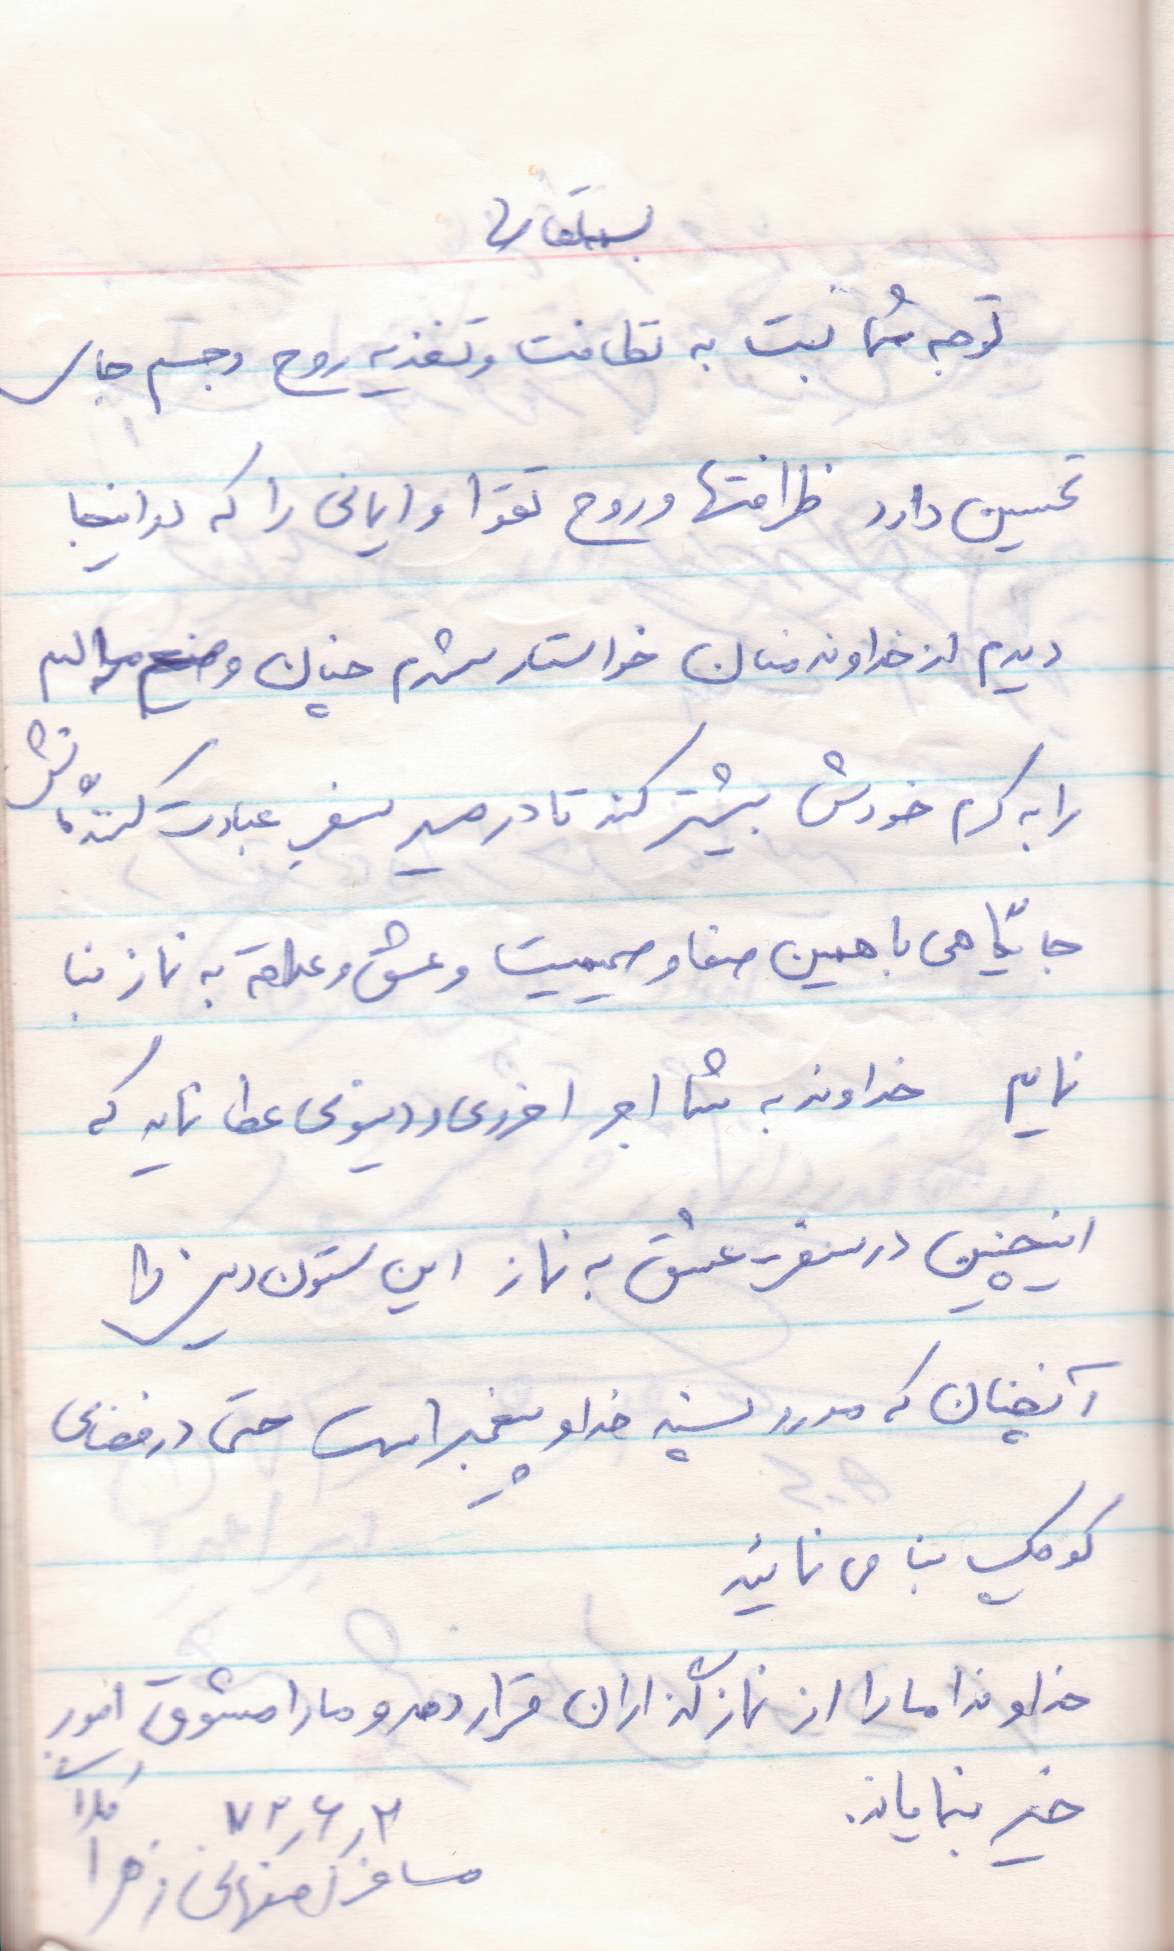 بسمه تعالی
توجه شما نسبت به نظافت و تغذیه روح و جسم جای
تحسین دارد ظرافتها و روح تقوا و ایمانی را که در اینجا
دیدم از خداوند منان خواستار شدم چنان
را به کرم خودش بیشتر کند تا در مسیر سفر عبادت کنندگانش
جایگاهی با همین صفا و صمیمیت و عشق و علاقه به نماز بنا
نمایم خداوند به شما اجر اخروی و دنیوی عطا نماید که
اینچنین در سفر عشق به نماز این ستون دین را
آنچنان که مورد پسند خدا و پیغمبر است حتی در فضای
کوچک بنا می نمائید
خداوندا ما را از نمازگذاران قرار دهد و ما را مشوق امور
خیر بنمایاند.
۷۳٫۶٫۲
مسافر اصفهانی زهرا